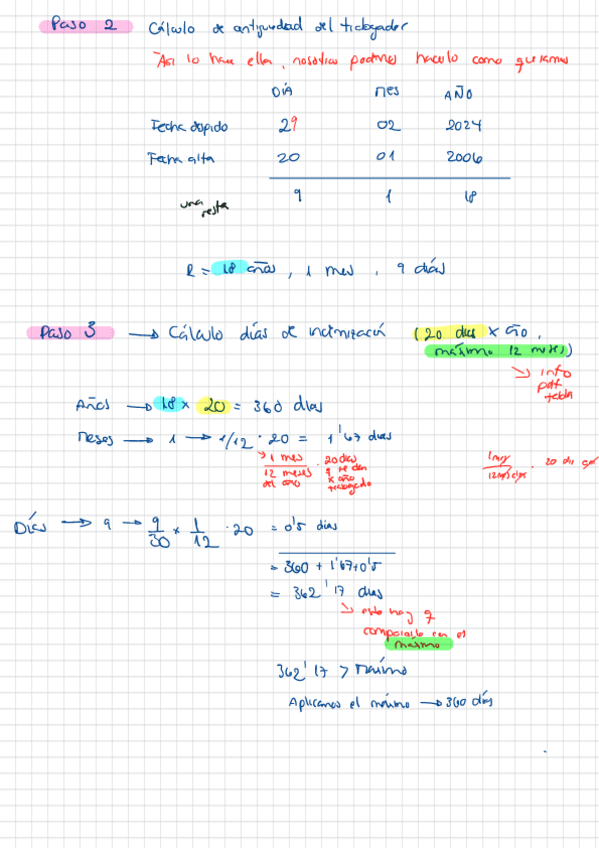 Paso 2 Cálculo de antigüedad del trabajador
Así lo hace ella, nosotros podemos hacerlo como queramos
DIA MES AÑO
Fecha despido 29 02 2024
Fecha alta 20 01 2006
una resta 9 1 18
R = 18 años, 1 mes, 9 días
Paso 3 → Cálculo días de indemnización (20 días x año,
máximo 12 meses)
↘ info
pdf
tabla
Años → 18 x 20 = 360 días
Meses → 1 → 1/12 · 20 = 1'67 días
↘ 1 mes / 12 meses del año · 20 días q se dan x año trabajado
1 mes / 12 meses · 20 días
Días → 9 → 9/30 x 1/12 · 20 = 0'5 días
= 360 + 1'67 + 0'5
= 362'17 días
↘ esto hay q
compararlo con el
máximo
362'17 > máximo
Aplicamos el máximo → 360 días